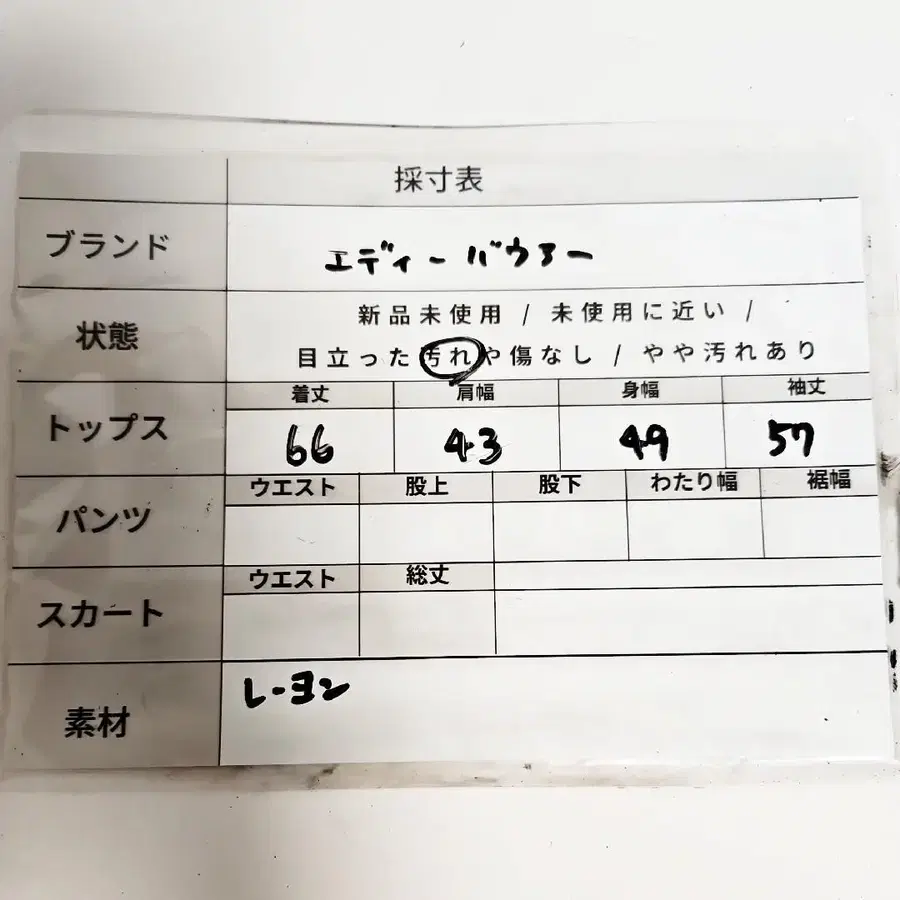 採寸表
ブランド エディーバウアー
状態 新品未使用 / 未使用に近い /
目立った汚れや傷なし / やや汚れあり
着丈 肩幅 身幅 袖丈
トップス 66 43 49 57
ウエスト 股上 股下 わたり幅 裾幅
パンツ
ウエスト 総丈
スカート
素材 レーヨン